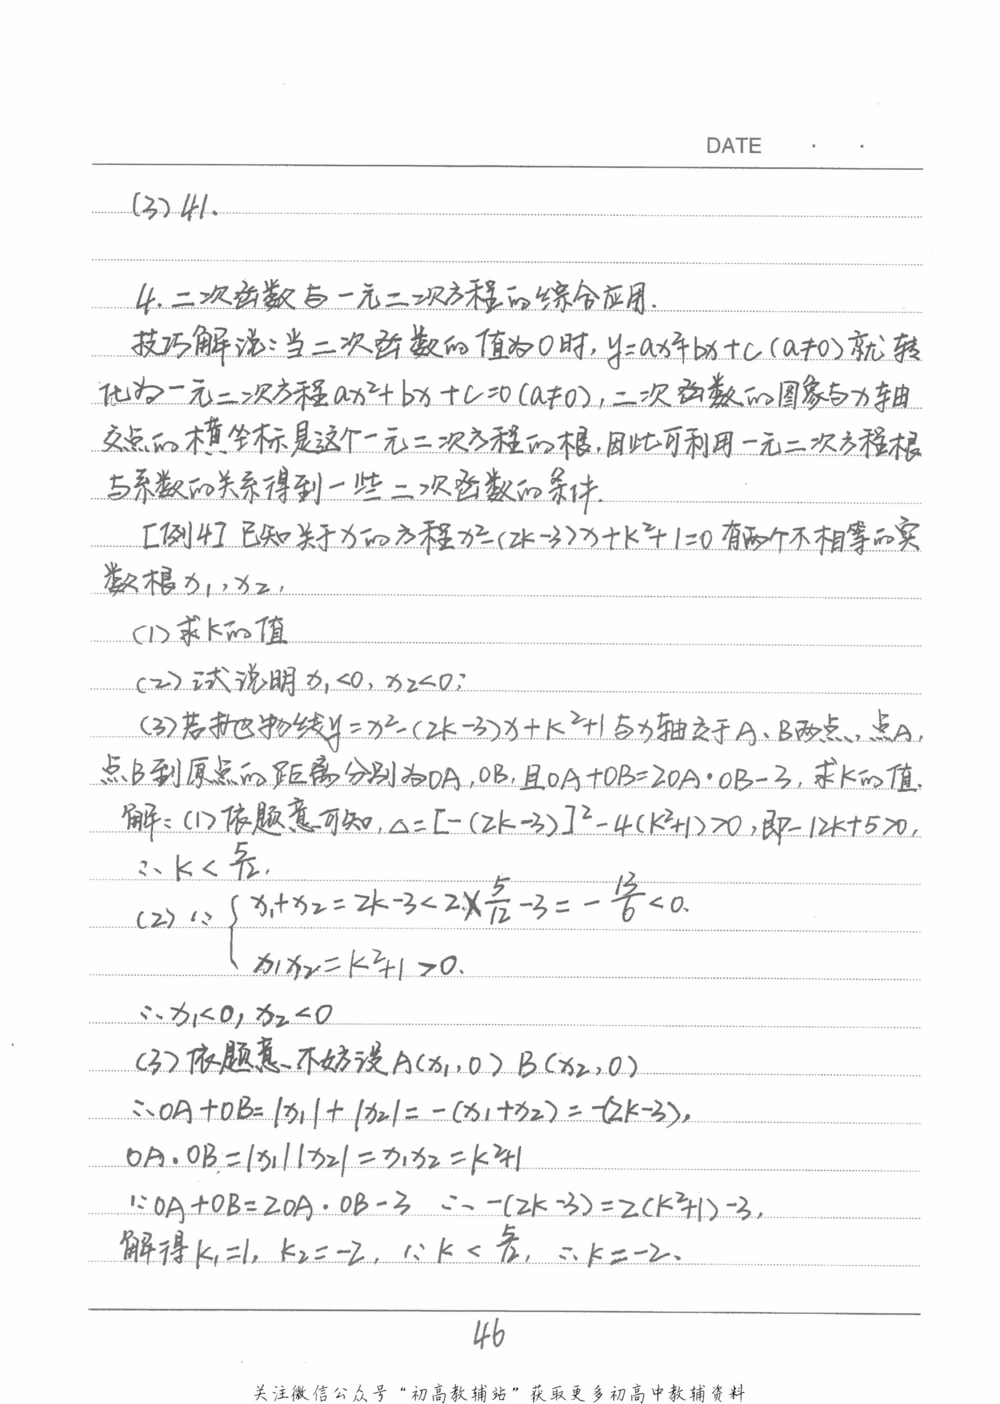 DATE · ·
(3) 41.
4. 二次函数与一元二次方程的综合应用.
技巧解说:当二次函数的值为0时,y=ax²+bx+c(a≠0)就转
化为一元二次方程ax²+bx+c=0(a≠0),二次函数的图象与x轴
交点的横坐标是这个一元二次方程的根,因此可利用一元二次方程根
与系数的关系得到一些二次函数的条件.
[例4] 已知关于x的方程x²-(2k-3)x+k²+1=0有两个不相等的实
数根x₁,x₂,
(1)求k的值
(2)试说明x₁<0,x₂<0;
(3)若抛物线y=x²-(2k-3)x+k²+1与x轴交于A、B两点,点A,
点B到原点的距离分别为OA,OB,且OA+OB=2OA·OB-3,求k的值.
解:(1)依题意可知,△=[-(2k-3)]²-4(k²+1)>0,即-12k+5>0,
∴k<5/12.
(2)∵{x₁+x₂=2k-3<2×5/12-3=-13/6<0.
x₁x₂=k²+1>0.
∴x₁<0,x₂<0
(3)依题意、不妨设A(x₁,0) B(x₂,0)
∴OA+OB=|x₁|+|x₂|=-(x₁+x₂)=-(2k-3),
OA·OB=|x₁||x₂|=x₁x₂=k²+1
∵OA+OB=2OA·OB-3 ∴-(2k-3)=2(k²+1)-3,
解得k₁=1,k₂=-2,∵k<5/12,∴k=-2.
46
关注微信公众号“初高教辅站”获取更多初高中教辅资料